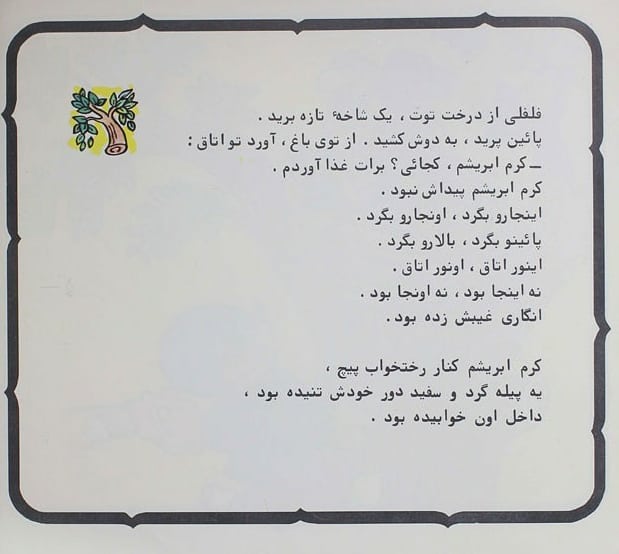 فلفلی از درخت توت ، یک شاخهٔ تازه برید .
پائین پرید ، به دوش کشید . از توی باغ ، آورد تو اتاق :
ــ کرم ابریشم ، کجائی؟ برات غذا آوردم .
کرم ابریشم پیداش نبود .
اینجارو بگرد ، اونجارو بگرد .
پائینو بگرد ، بالارو بگرد .
اینور اتاق ، اونور اتاق .
نه اینجا بود ، نه اونجا بود .
انگاری غیبش زده بود .
کرم ابریشم کنار رختخواب پیچ ،
یه پیله گرد و سفید دور خودش تنیده بود ،
داخل اون خوابیده بود .